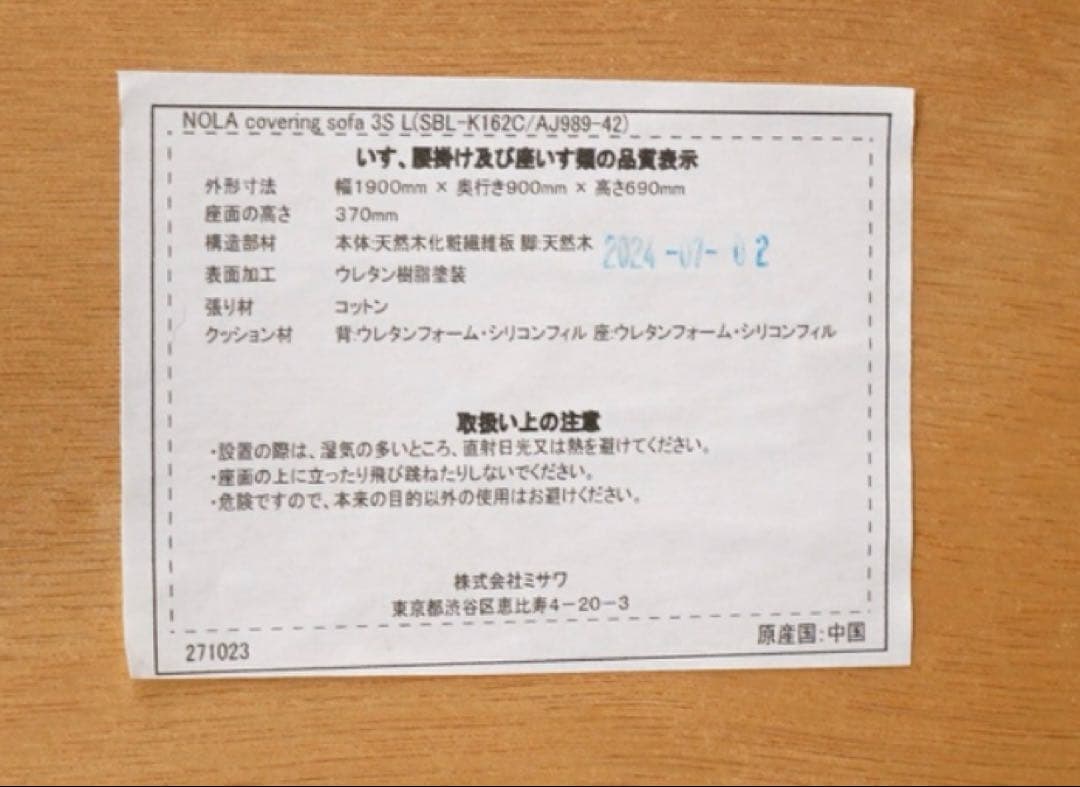 NOLA covering sofa 3S L(SBL-K162C/AJ989-42)
いす、腰掛け及び座いす類の品質表示
外形寸法 幅1900mm × 奥行き900mm × 高さ690mm
座面の高さ 370mm
構造部材 本体:天然木化粧繊維板 脚:天然木 2024-07-02
表面加工 ウレタン樹脂塗装
張り材 コットン
クッション材 背:ウレタンフォーム・シリコンフィル 座:ウレタンフォーム・シリコンフィル
取扱い上の注意
・設置の際は、湿気の多いところ、直射日光又は熱を避けてください。
・座面の上に立ったり飛び跳ねたりしないでください。
・危険ですので、本来の目的以外の使用はお避けください。
株式会社ミサワ
東京都渋谷区恵比寿4-20-3
原産国:中国
271023